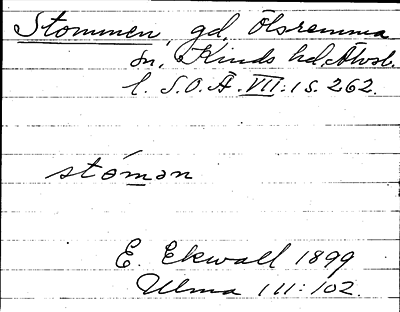 Stommen, gd, Ölsremma
sn, Kinds hd, Älvsb.
l. S.O.Ä. VII:1 s. 262.
stómən
E. Ekwall 1899
Ulma 111:102.